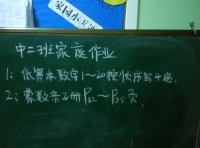 家园小天地
中二班家庭作业
1:在算本数字1~20按顺序写4遍
2:蒙数亲子册P32~P35页